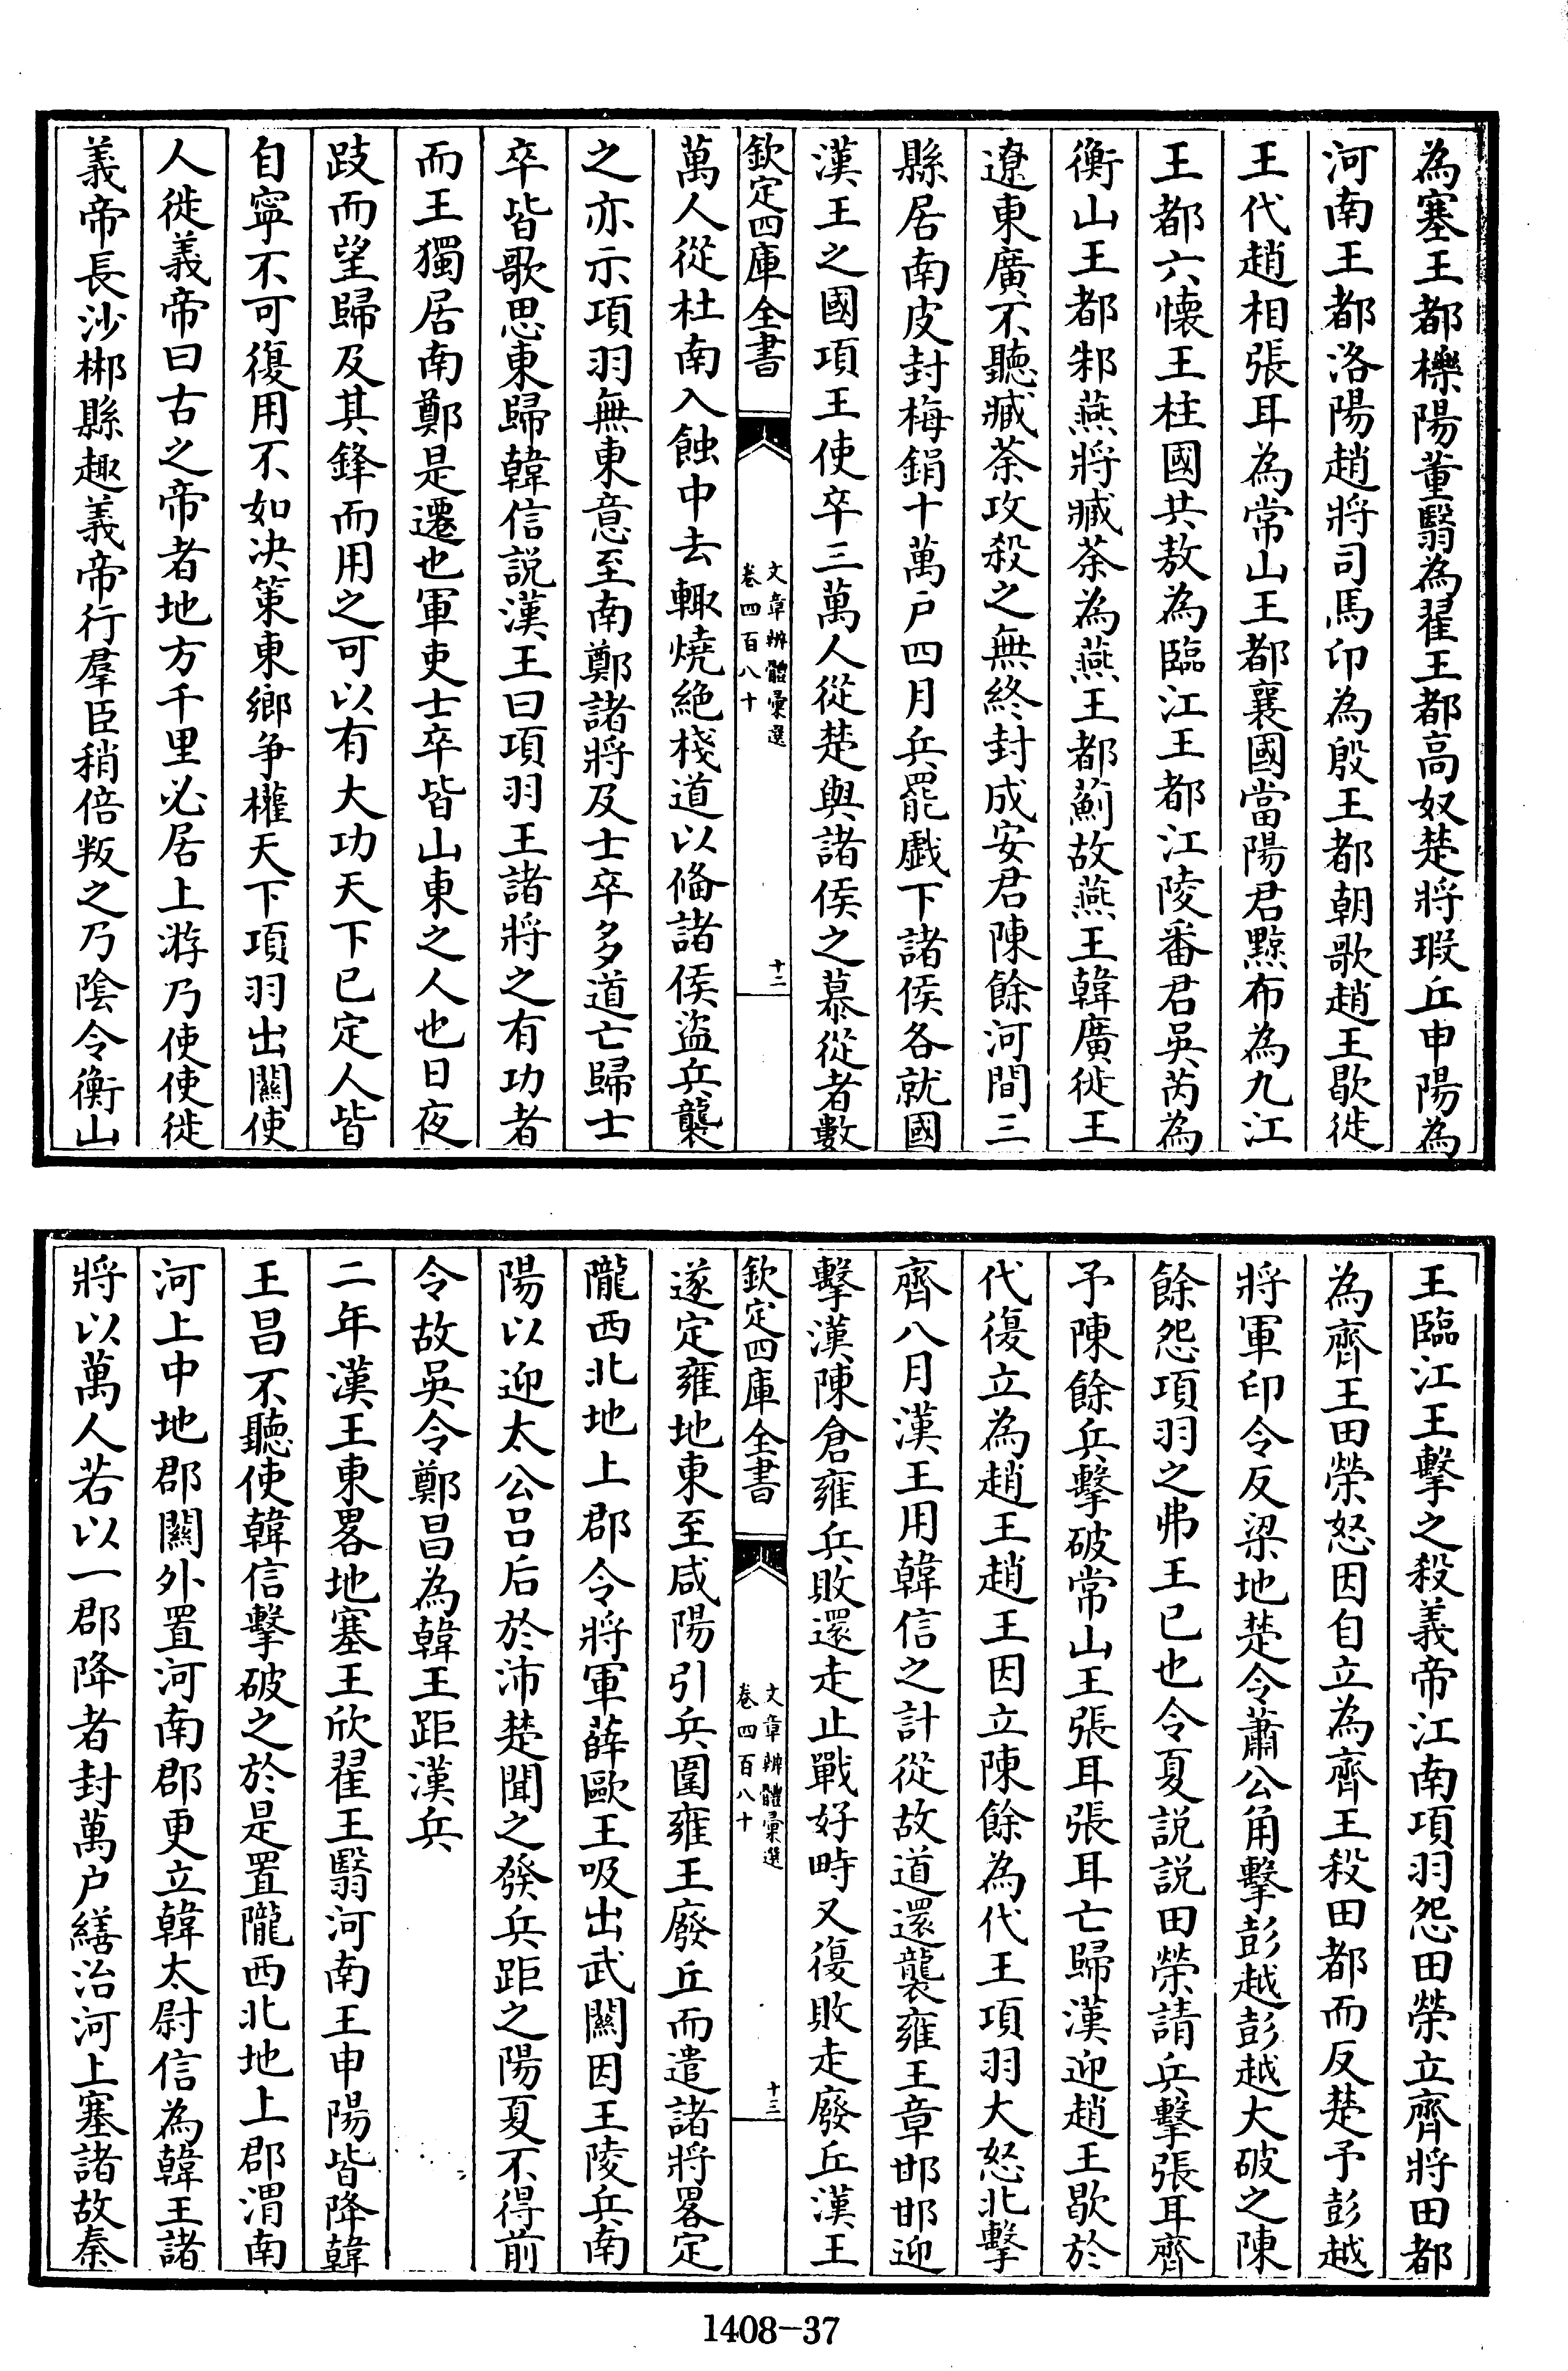 為塞王都櫟陽董翳為翟王都高奴楚將瑕丘申陽為
河南王都洛陽趙將司馬卬為殷王都朝歌趙王歇徙
王代趙相張耳為常山王都襄國當陽君黥布為九江
王都六懐王柱國共敖為臨江王都江陵番君吳芮為
衡山王都邾燕將臧荼為燕王都薊故燕王韓廣徙王
遼東廣不聽臧荼攻殺之無終封成安君陳餘河間三
縣居南皮封梅鋗十萬户四月兵罷戲下諸侯各就國
漢王之國項王使卒三萬人從楚與諸侯之慕從者數
欽定四庫全書
文章辨體彙選
卷四百八十
十二
萬人從杜南入蝕中去輙燒絶棧道以偹諸侯盜兵襲
之亦示項羽無東意至南鄭諸將及士卒多道亡歸士
卒皆歌思東歸韓信説漢王曰項羽王諸將之有功者
而王獨居南鄭是遷也軍吏士卒皆山東之人也日夜
跂而望歸及其鋒而用之可以有大功天下已定人皆
自寧不可復用不如决策東鄉争權天下項羽出關使
人徙義帝曰古之帝者地方千里必居上游乃使使徙
義帝長沙郴縣趣義帝行羣臣稍倍叛之乃隂令衡山
王臨江王擊之殺義帝江南項羽怨田榮立齊將田都
為齊王田榮怒因自立為齊王殺田都而反楚予彭越
將軍印令反梁地楚令蕭公角擊彭越彭越大破之陳
餘怨項羽之弗王已也令夏説説田榮請兵擊張耳齊
予陳餘兵擊破常山王張耳張耳亡歸漢迎趙王歇於
代復立為趙王趙王因立陳餘為代王項羽大怒北擊
齊八月漢王用韓信之計從故道還襲雍王章邯邯迎
擊漢陳倉雍兵敗還走止戰好畤又復敗走廢丘漢王
欽定四庫全書
文章辨體彙選
卷四百八十
十三
遂定雍地東至咸陽引兵圍雍王廢丘而遣諸將畧定
隴西北地上郡令將軍薛歐王吸出武關因王陵兵南
陽以迎太公吕后於沛楚聞之發兵距之陽夏不得前
令故吳令鄭昌為韓王距漢兵
二年漢王東畧地塞王欣翟王翳河南王申陽皆降韓
王昌不聽使韓信擊破之於是置隴西北地上郡渭南
河上中地郡關外置河南郡更立韓太尉信為韓王諸
將以萬人若以一郡降者封萬户繕治河上塞諸故秦
1408-37